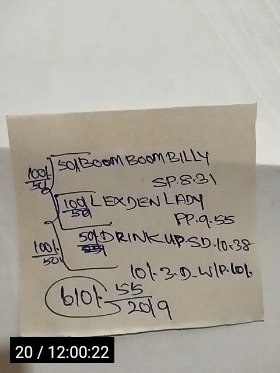 50/- BOOM BOOM BILLY
100/-
50
SP.8.31
100/- LEXDEN LADY
50
PP.9.55
50/- DRINK UP.SD.10.38
100/-
50
10/-.3.D.W/P.60/-
610/- 55
2019
20 / 12:00:22